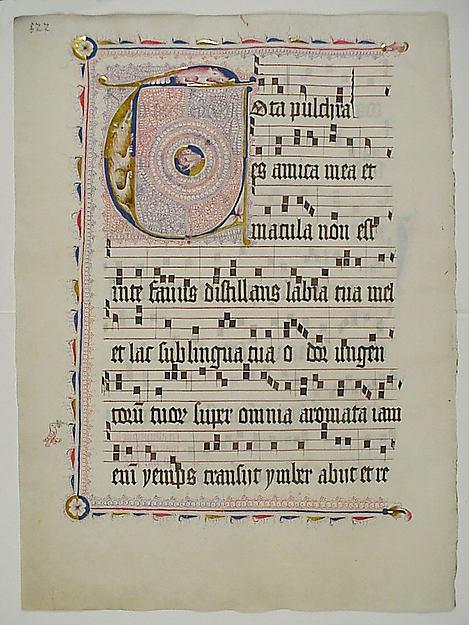 Tota pulchra
es amica mea et
macula non est
inte fauus distillans labia tua mel
et lac sub lingua tua o dor ungen
torū tuoꝝ super omnia aromata iam
enī yemps transiit ymber abiit et re